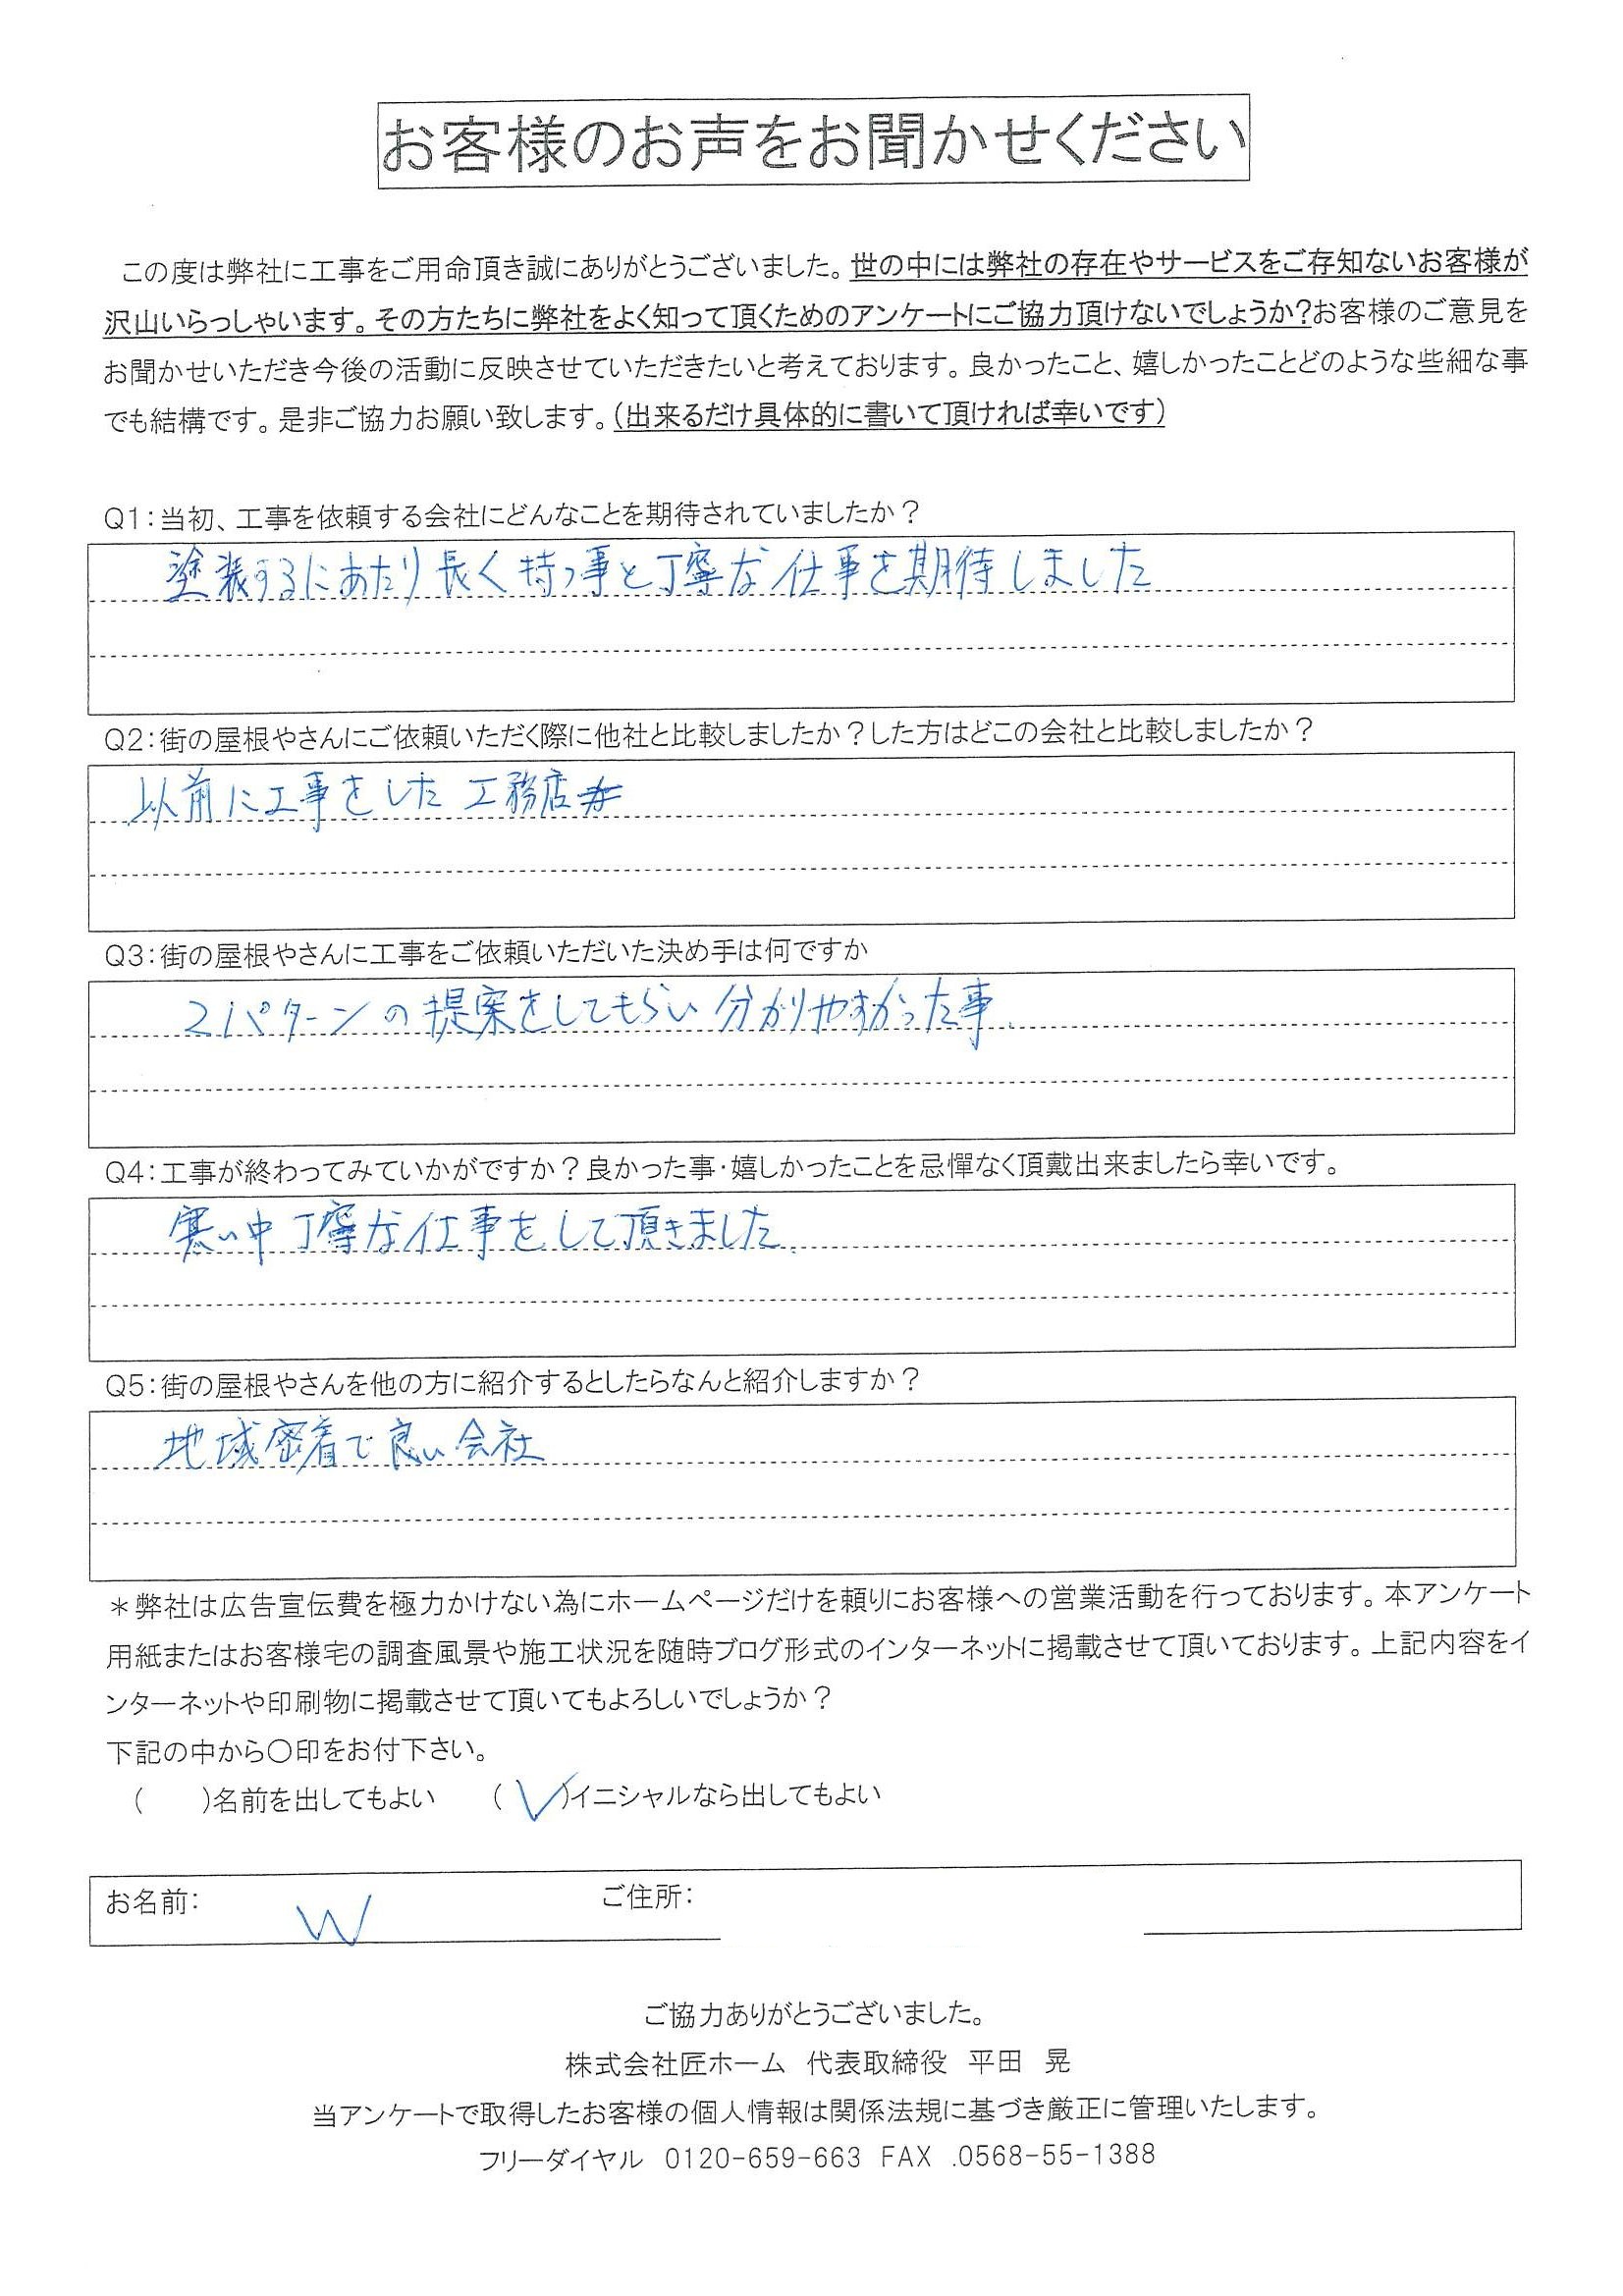 お客様のお声をお聞かせください
この度は弊社に工事をご用命頂き誠にありがとうございました。世の中には弊社の存在やサービスをご存知ないお客様が
沢山いらっしゃいます。その方たちに弊社をよく知って頂くためのアンケートにご協力頂けないでしょうか?お客様のご意見を
お聞かせいただき今後の活動に反映させていただきたいと考えております。良かったこと、嬉しかったことどのような些細な事
でも結構です。是非ご協力お願い致します。(出来るだけ具体的に書いて頂ければ幸いです)
Q1:当初、工事を依頼する会社にどんなことを期待されていましたか?
塗装するにあたり長く持つ事と丁寧な仕事を期待しました
Q2:街の屋根やさんにご依頼いただく際に他社と比較しましたか?した方はどこの会社と比較しましたか?
以前に工事をした 工務店
Q3:街の屋根やさんに工事をご依頼いただいた決め手は何ですか
2パターンの提案をしてもらい分かりやすかった事
Q4:工事が終わってみていかがですか?良かった事・嬉しかったことを忌憚なく頂戴出来ましたら幸いです。
寒い中丁寧な仕事をして頂きました
Q5:街の屋根やさんを他の方に紹介するとしたらなんと紹介しますか?
地域密着で良い会社
*弊社は広告宣伝費を極力かけない為にホームページだけを頼りにお客様への営業活動を行っております。本アンケート
用紙またはお客様宅の調査風景や施工状況を随時ブログ形式のインターネットに掲載させて頂いております。上記内容をイ
ンターネットや印刷物に掲載させて頂いてもよろしいでしょうか?
下記の中から○印をお付下さい。
( )名前を出してもよい (✓)イニシャルなら出してもよい
お名前: W ご住所:
ご協力ありがとうございました。
株式会社匠ホーム 代表取締役 平田 晃
当アンケートで取得したお客様の個人情報は関係法規に基づき厳正に管理いたします。
フリーダイヤル 0120-659-663 FAX .0568-55-1388